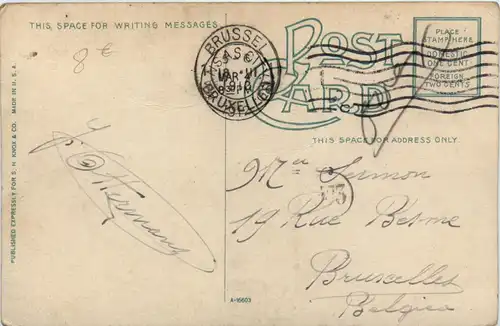 THIS SPACE FOR WRITING MESSAGES
8 €
POST
CARD
PLACE
STAMP HERE
DOMESTIC
ONE CENT
FOREIGN
TWO CENTS
BRUSSEL
BRUXELLES
THIS SPACE FOR ADDRESS ONLY.
MADE IN U.S.A.
PUBLISHED EXPRESSLY FOR S. H. KNOX & CO.
Hermans
175
19 Rue
Bruxelles
Belgica
A-16603